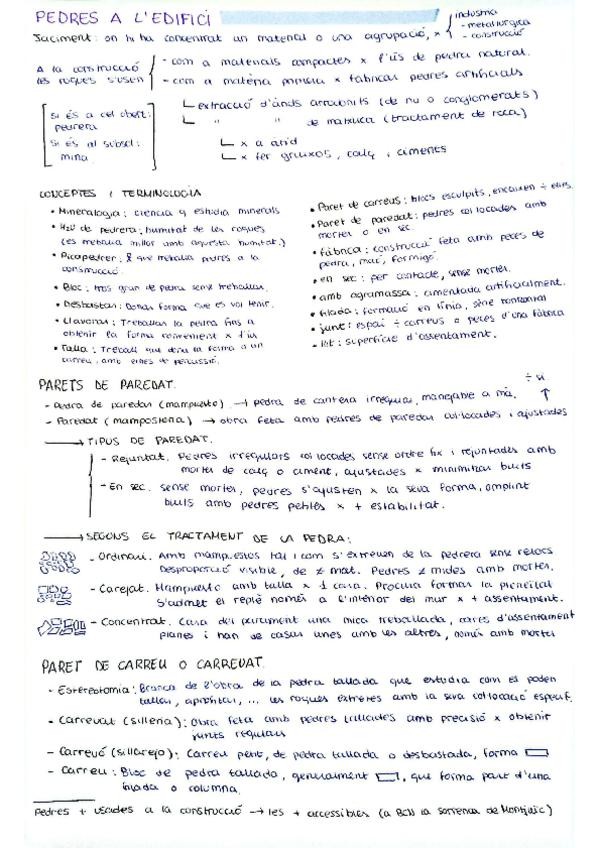 PEDRES A L'EDIFICI
Jaciment: on hi ha concentrat un material o una agrupació, x { industria
- metal·lúrgica
- construcció
A la construcció les roques s'usen
- com a materials compactes x l'ús de pedra natural.
- com a matèria primera x fabricar pedres artificials
si és a cel obert: pedrera
si és al subsol: mina
extracció d'àrids (de riu o conglomerats)
" " de matxuca (tractament de roca)
x a àrid
x fer guixos, calç i ciments
CONCEPTES I TERMINOLOGIA
• Mineralogia: ciència q estudia minerals
• H2O de pedrera: humitat de les roques
(es treballa millor amb aquesta humitat.)
• Picapedrer: que treballa pedres a la
construcció.
• Bloc: tros gran de pedra sense treballar.
• Desbastar: Donar forma que es vol tenir.
• Treballar la pedra fins a
obtenir la forma convenient x l'ús
• Talla: Treball que dona la forma a un
carreu, amb eines de percussió.
• Paret de carreus: blocs esculpits, encaixen ÷ ells.
• Paret de paredat: pedres col·locades amb
morter o en sec.
• fàbrica: construcció feta amb peces de
pedra, maó, formigó.
• en sec: per contacte, sense morter.
• amb argamassa: cimentada artificialment.
• filada: formació en línia, sèrie horitzontal
• junt: espai ÷ carreus o peces d'una fàbrica
- llit: superfície d'assentament.
PARETS DE PAREDAT.
- Pedra de paredar (mampuesto) → pedra de cantera irregular, manejable a mà. ÷ si
- Paredat (mampostería) → obra feta amb pedres de paredar col·locades i ajustades ↑
→ TIPUS DE PAREDAT.
- Rejuntat. Pedres irregulars col·locades sense ordre fix i rejuntades amb
morter de calç o ciment, ajustades x minimitzar buits
- En sec. sense morter, pedres s'ajusten x la seva forma, omplint
buits amb pedres petites x + estabilitat.
→ SEGONS EL TRACTAMENT DE LA PEDRA:
- Ordinari. Amb mampostos tal i com s'extreuen de la pedrera sense retocs
Desproporció visible, de ≠ mat. Pedres ≠ mides amb morter.
- Carejat. Mampuesto amb talla x 1 cara. Procura formar la planeïtat
S'admet el replè només a l'interior del mur x + assentament.
- Concertat. Cara del parament una mica treballada, cares d'assentament
planes i han de casar unes amb les altres, només amb morter
PARET DE CARREU O CARREUAT.
- Estereotomia: Branca de l'obra de la pedra tallada que estudia com es poden
tallar, aprofitar, ... les roques extretes amb la seva col·locació específ.
- Carreuat (sillería): Obra feta amb pedres tallades amb precisió x obtenir
junts regulars
- Carreuó (sillarejo): Carreu petit, de pedra tallada o desbastada, forma
- Carreu: Bloc de pedra tallada, generalment , que forma part d'una
filada o columna.
Pedres + usades a la construcció → les + accessibles (a BCN la sorrenca de Montjuïc)